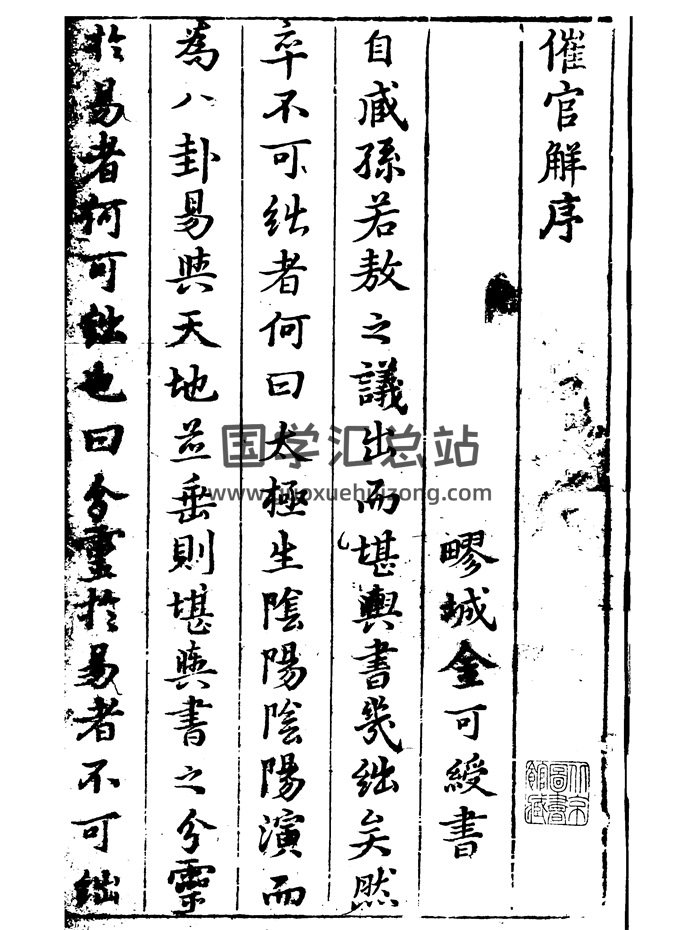 催官解序
疁城金可綬書
自臧孫若敖之議出而堪輿書幾絀矣然
卒不可絀者何曰太極生陰陽陰陽演而
為八卦易與天地並垂則堪輿書之分靈
於易者何可絀也曰分靈於易者不可絀
国学汇总站
www.guoxuehuizong.com
北京圖書館藏